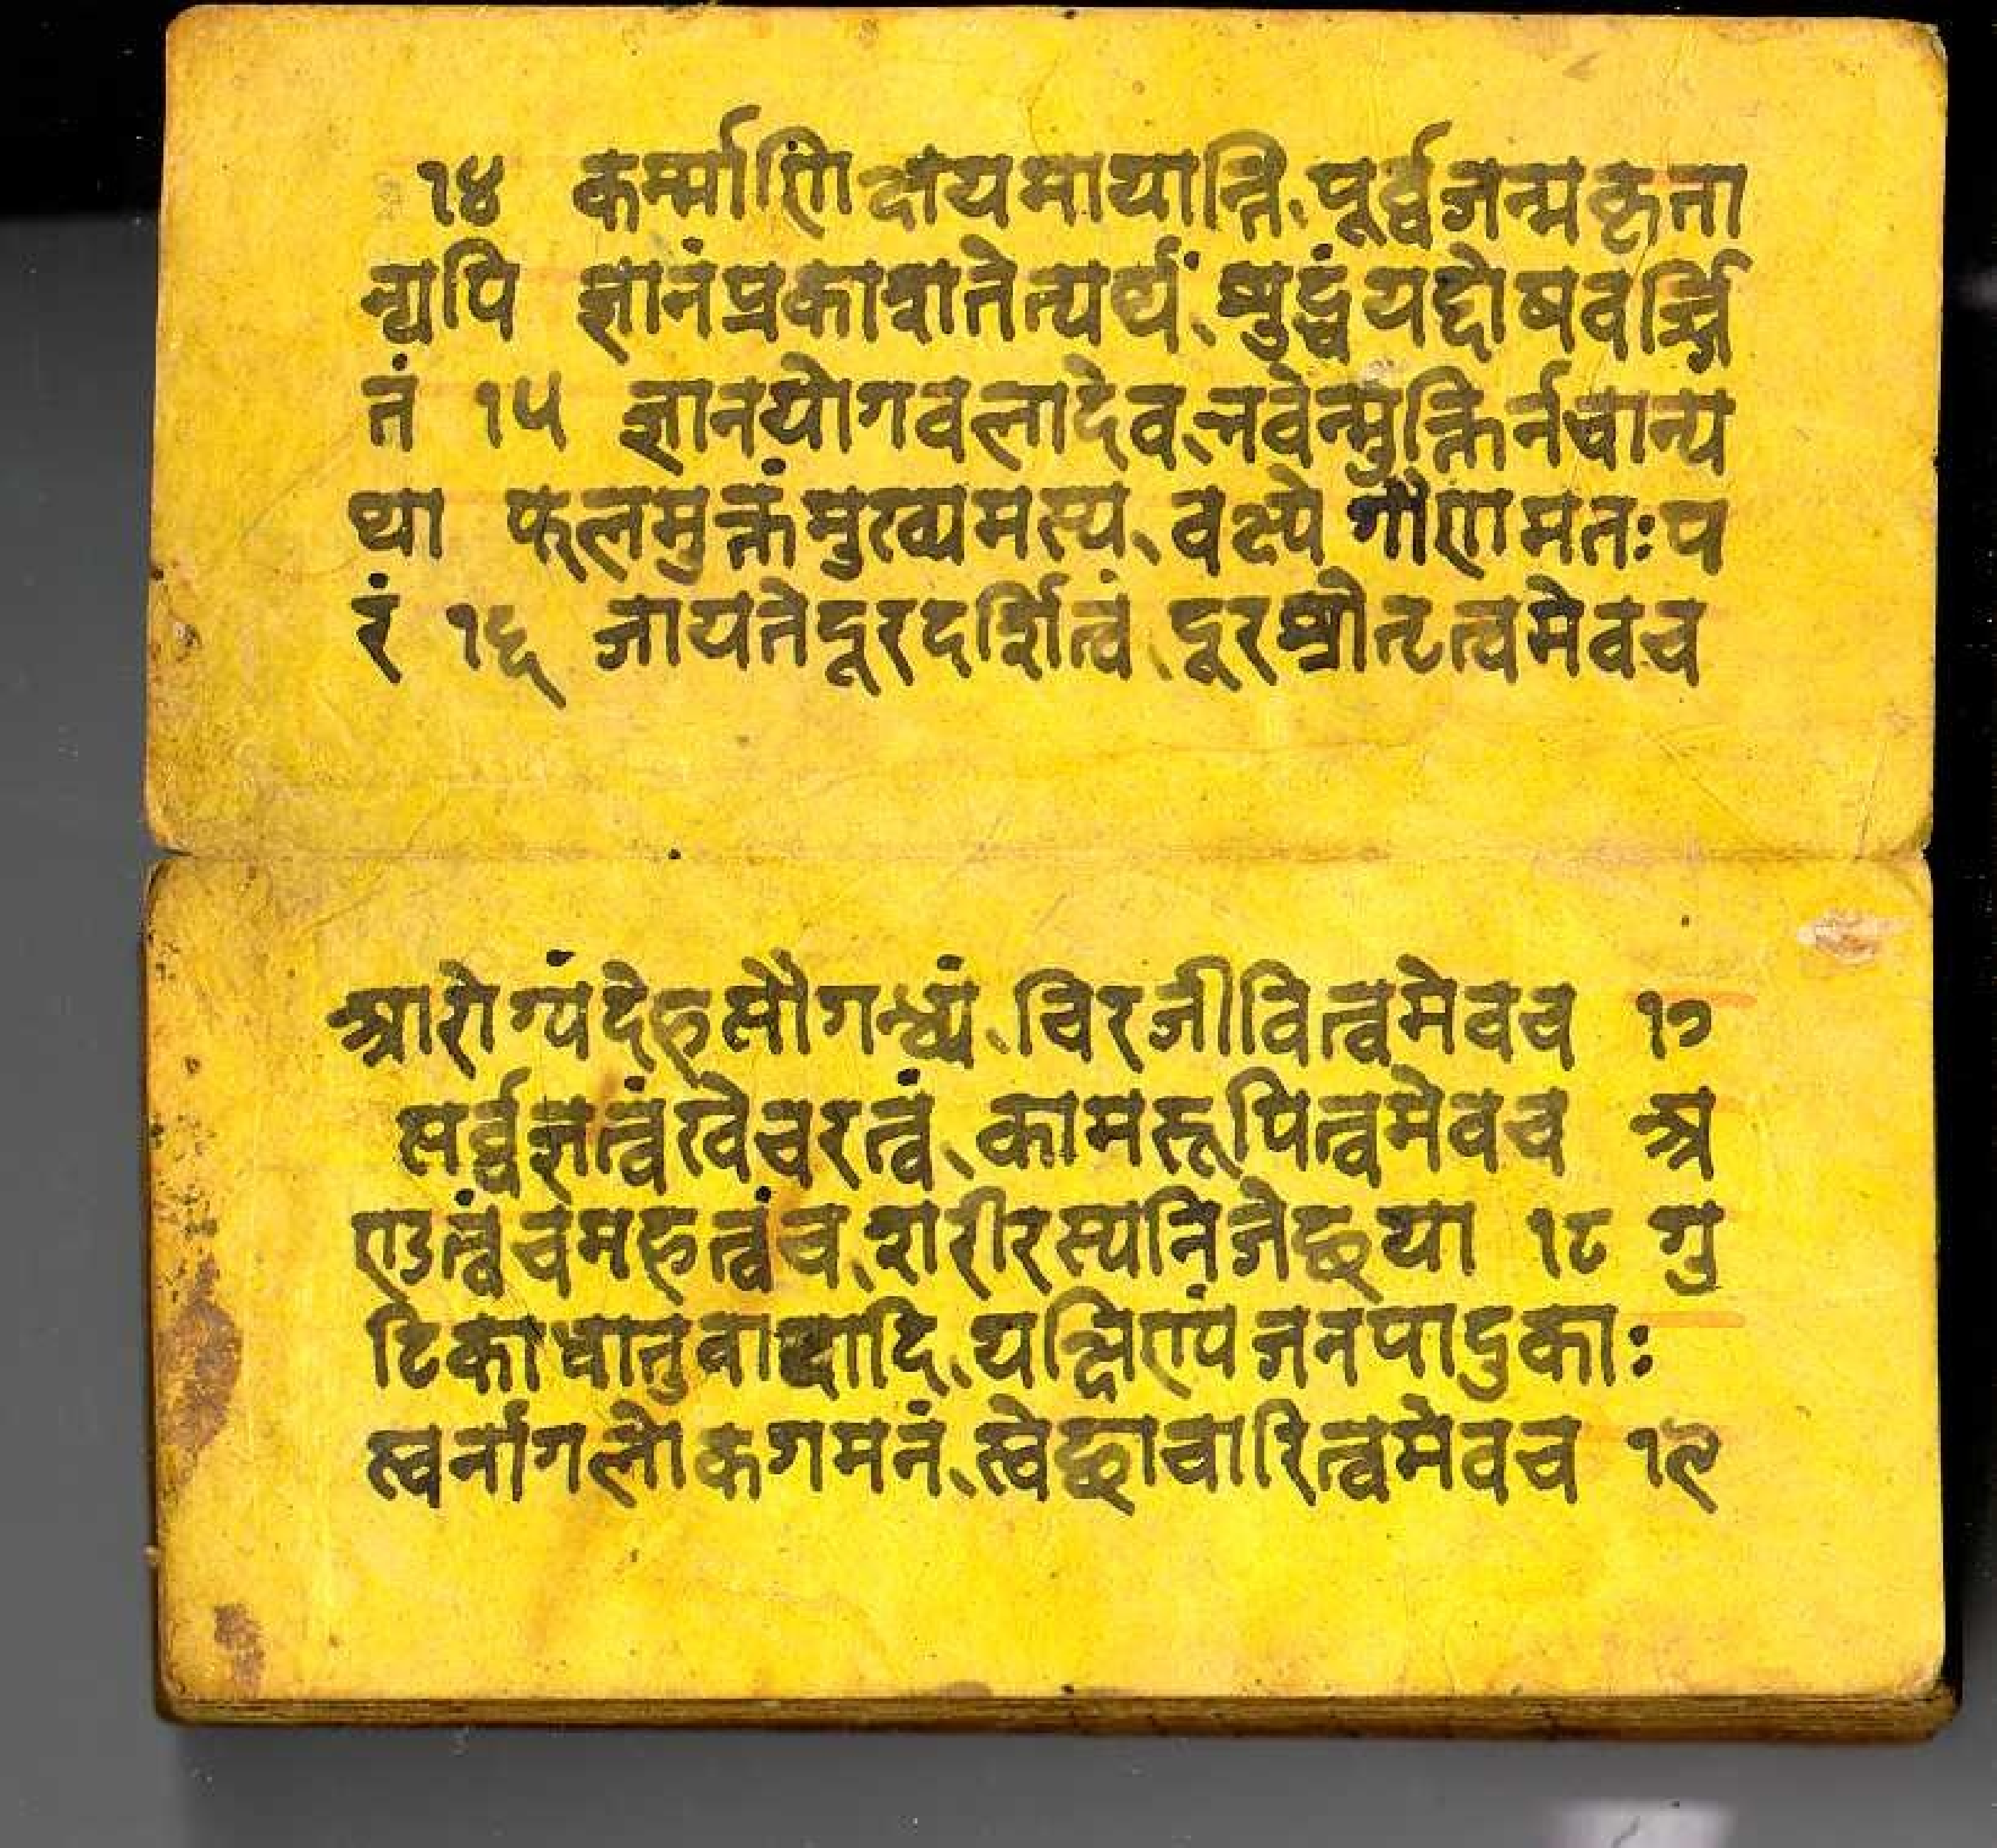 १४ कर्म्माणि क्षयमायान्ति, पूर्व्वजन्मकृता
न्यपि ज्ञानंप्रकाशतेत्यर्थं, शुद्धंयद्दोषवर्ज्जि
तं १५ ज्ञानयोगवलादेव, भवेन्मुक्तिर्नचान्य
था फलमुक्तंमुख्यमस्य, वक्ष्ये गौणमतःप
रं १६ जायतेदूरदर्शित्वं, दूरश्रोतृत्वमेवच
आरोग्यंदेहसौगन्ध्यं, चिरजीवित्वमेवच १७
सर्व्वज्ञत्वंखेचरत्वं, कामरूपित्वमेवच अ
णुत्वंचमहत्वंच, शरीरस्यनिजेछ्या १८ गु
टिकाधातुवाद्यादि, यक्षिणंपंजनपादुकाः
स्वर्नागलोकगमनं, स्वेछाचारित्वमेवच १९